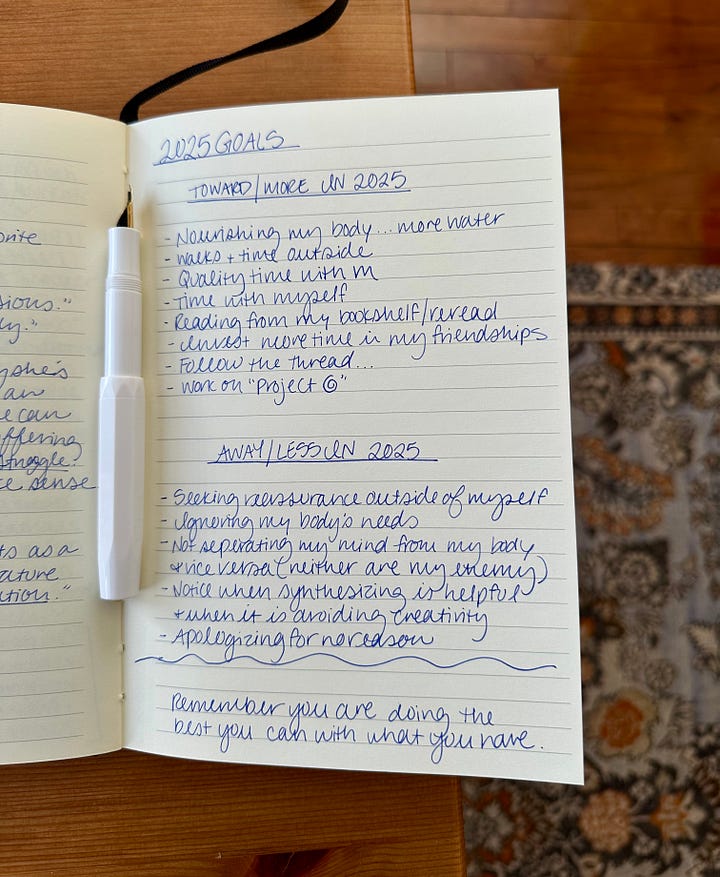 orite
sious."
y."
she's
an
e can
ffering
struggle.
ce sense
ts as a
ature
tion."
2025 GOALS
TOWARD/MORE IN 2025
- Nourishing my body... more water
- walks + time outside
- Quality time with m
- Time with myself
- Reading from my bookshelf/reread
- Invest more time in my friendships
- Follow the thread...
- work on "Project @"
AWAY/LESS IN 2025
- Seeking reassurance outside of myself
- Ignoring my body's needs
- Not seperating my mind from my body
+ vice versa (neither are my enemy)
- Notice when synthesizing is helpful
+ when it is avoiding creativity
- Apologizing for no reason
Remember you are doing the
best you can with what you have.